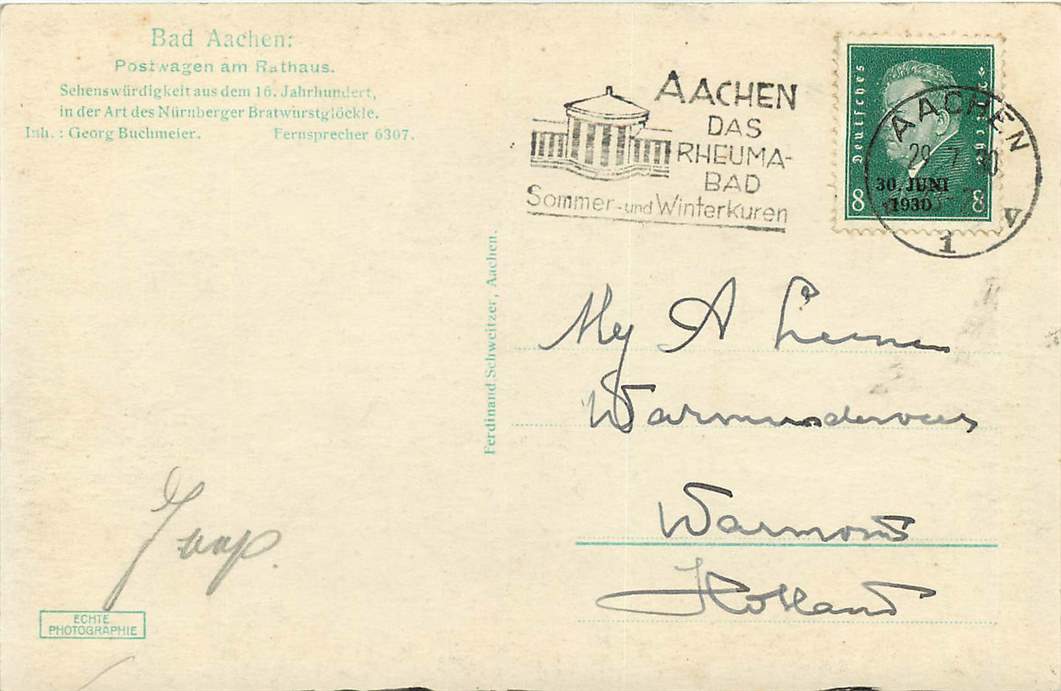 Bad Aachen:
Postwagen am Rathaus.
Sehenswürdigkeit aus dem 16. Jahrhundert,
in der Art des Nürnberger Bratwurstglöckle.
Inh.: Georg Buchmeier. Fernsprecher 6307.
AACHEN
DAS
RHEUMA-
BAD
Sommer- und Winterkuren
Deutsches Reich
30. JUNI
1930
8 8
AACHEN
29 7 30
1 V
Ferdinand Schweitzer, Aachen.
A
Warmond
Holland
Jaap.
ECHTE
PHOTOGRAPHIE